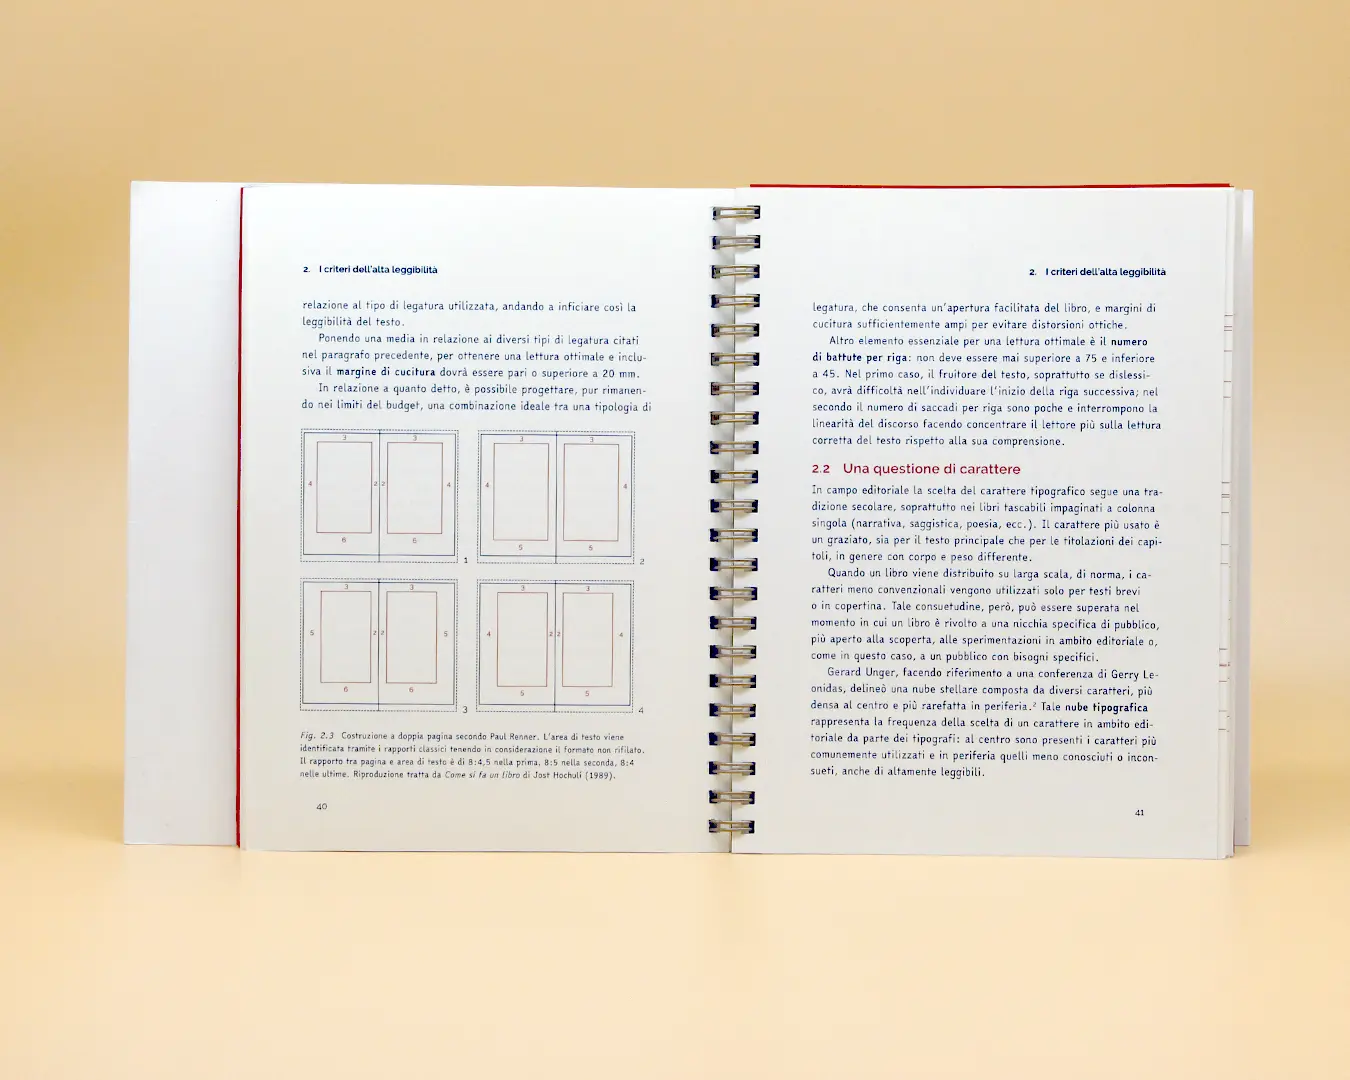 2. I criteri dell'alta leggibilità
relazione al tipo di legatura utilizzata, andando a inficiare così la
leggibilità del testo.
Ponendo una media in relazione ai diversi tipi di legatura citati
nel paragrafo precedente, per ottenere una lettura ottimale e inclu-
siva il margine di cucitura dovrà essere pari o superiore a 20 mm.
In relazione a quanto detto, è possibile progettare, pur rimanen-
do nei limiti del budget, una combinazione ideale tra una tipologia di
3 3
4 2 2 4
6 6
1
3 3
4 4
5 5
2
3 3
5 2 2 5
6 6
3
3 3
4 2 2 4
5 5
4
Fig. 2.3 Costruzione a doppia pagina secondo Paul Renner. L'area di testo viene
identificata tramite i rapporti classici tenendo in considerazione il formato non rifilato.
Il rapporto tra pagina e area di testo è di 8:4,5 nella prima, 8:5 nella seconda, 8:4
nelle ultime. Riproduzione tratta da Come si fa un libro di Jost Hochuli (1989).
40
2. I criteri dell'alta leggibilità
legatura, che consenta un'apertura facilitata del libro, e margini di
cucitura sufficientemente ampi per evitare distorsioni ottiche.
Altro elemento essenziale per una lettura ottimale è il numero
di battute per riga: non deve essere mai superiore a 75 e inferiore
a 45. Nel primo caso, il fruitore del testo, soprattutto se dislessi-
co, avrà difficoltà nell'individuare l'inizio della riga successiva; nel
secondo il numero di saccadi per riga sono poche e interrompono la
linearità del discorso facendo concentrare il lettore più sulla lettura
corretta del testo rispetto alla sua comprensione.
2.2 Una questione di carattere
In campo editoriale la scelta del carattere tipografico segue una tra-
dizione secolare, soprattutto nei libri tascabili impaginati a colonna
singola (narrativa, saggistica, poesia, ecc.). Il carattere più usato è
un graziato, sia per il testo principale che per le titolazioni dei capi-
toli, in genere con corpo e peso differente.
Quando un libro viene distribuito su larga scala, di norma, i ca-
ratteri meno convenzionali vengono utilizzati solo per testi brevi
o in copertina. Tale consuetudine, però, può essere superata nel
momento in cui un libro è rivolto a una nicchia specifica di pubblico,
più aperto alla scoperta, alle sperimentazioni in ambito editoriale o,
come in questo caso, a un pubblico con bisogni specifici.
Gerard Unger, facendo riferimento a una conferenza di Gerry Le-
onidas, delineò una nube stellare composta da diversi caratteri, più
densa al centro e più rarefatta in periferia.² Tale nube tipografica
rappresenta la frequenza della scelta di un carattere in ambito edi-
toriale da parte dei tipografi: al centro sono presenti i caratteri più
comunemente utilizzati e in periferia quelli meno conosciuti o incon-
sueti, anche di altamente leggibili.
41